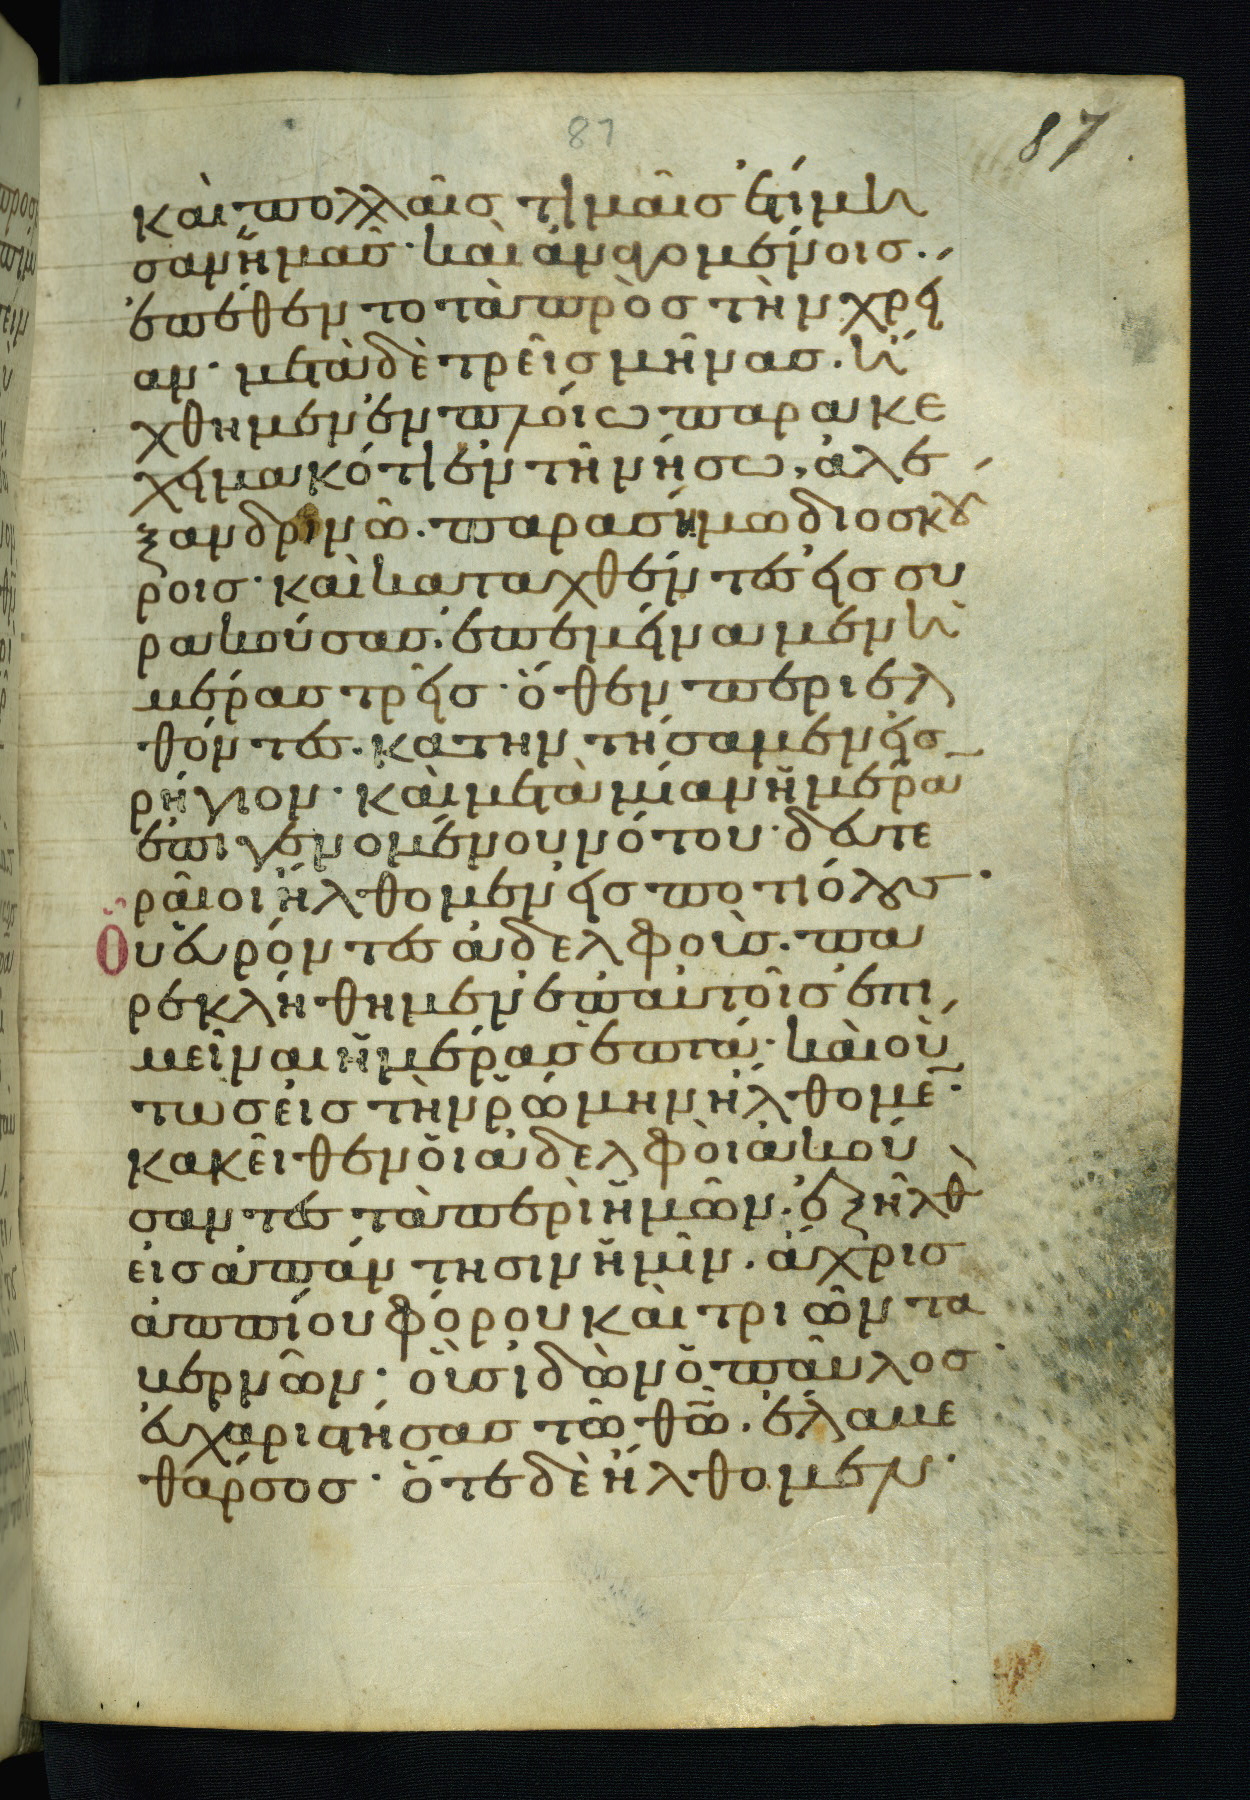 87
87
καὶ πολλαῖς τιμαῖς ἐτίμη
σαν ἡμᾶς· καὶ ἀναγομένοις.
ἐπέθεντο τὰ πρὸς τὴν χρεί
αν· μετὰ δὲ τρεῖς μῆνας. ἤ
χθημεν ἐν πλοίω παρακε
χειμακότι ἐν τῆ νήσω, ἀλε
ξανδρινῶ. παρασήμω διοσκου
ροις· καὶ καταχθέντες εἰς συ
ρακούσας. ἐπεμείναμεν ἡ
μέρας τρεῖς· ὅθεν περιελ
θόντες. κατηντήσαμεν εἰς
ρήγιον· καὶ μετὰ μίαν ἡμέραν
ἐπιγενομένου νότου· δευτε
ραῖοι ἤλθομεν εἰς ποτιόλους·
Οὗ εὑρόντες ἀδελφοὺς. πα
ρεκλήθημεν ἐπ αὐτοῖς ἐπι
μεῖναι ἡμέρας ἑπτά· καὶ οὕ
τως εἰς τὴν ῥώμην ἤλθομεν·
κακεῖθεν οἱ ἀδελφοὶ ἀκού
σαντες τὰ περὶ ἡμῶν. ἐξῆλθ
εἰς ἀπάντησιν ἡμῖν. ἄχρις
ἀππίου φόρου καὶ τριῶν τα
βερνῶν· οὓς ἰδὼν ὁ παῦλος
εὐχαριστήσας τῶ θῶ. ἔλαβε
θάρσος· ὅτε δὲ ἤλθομεν·